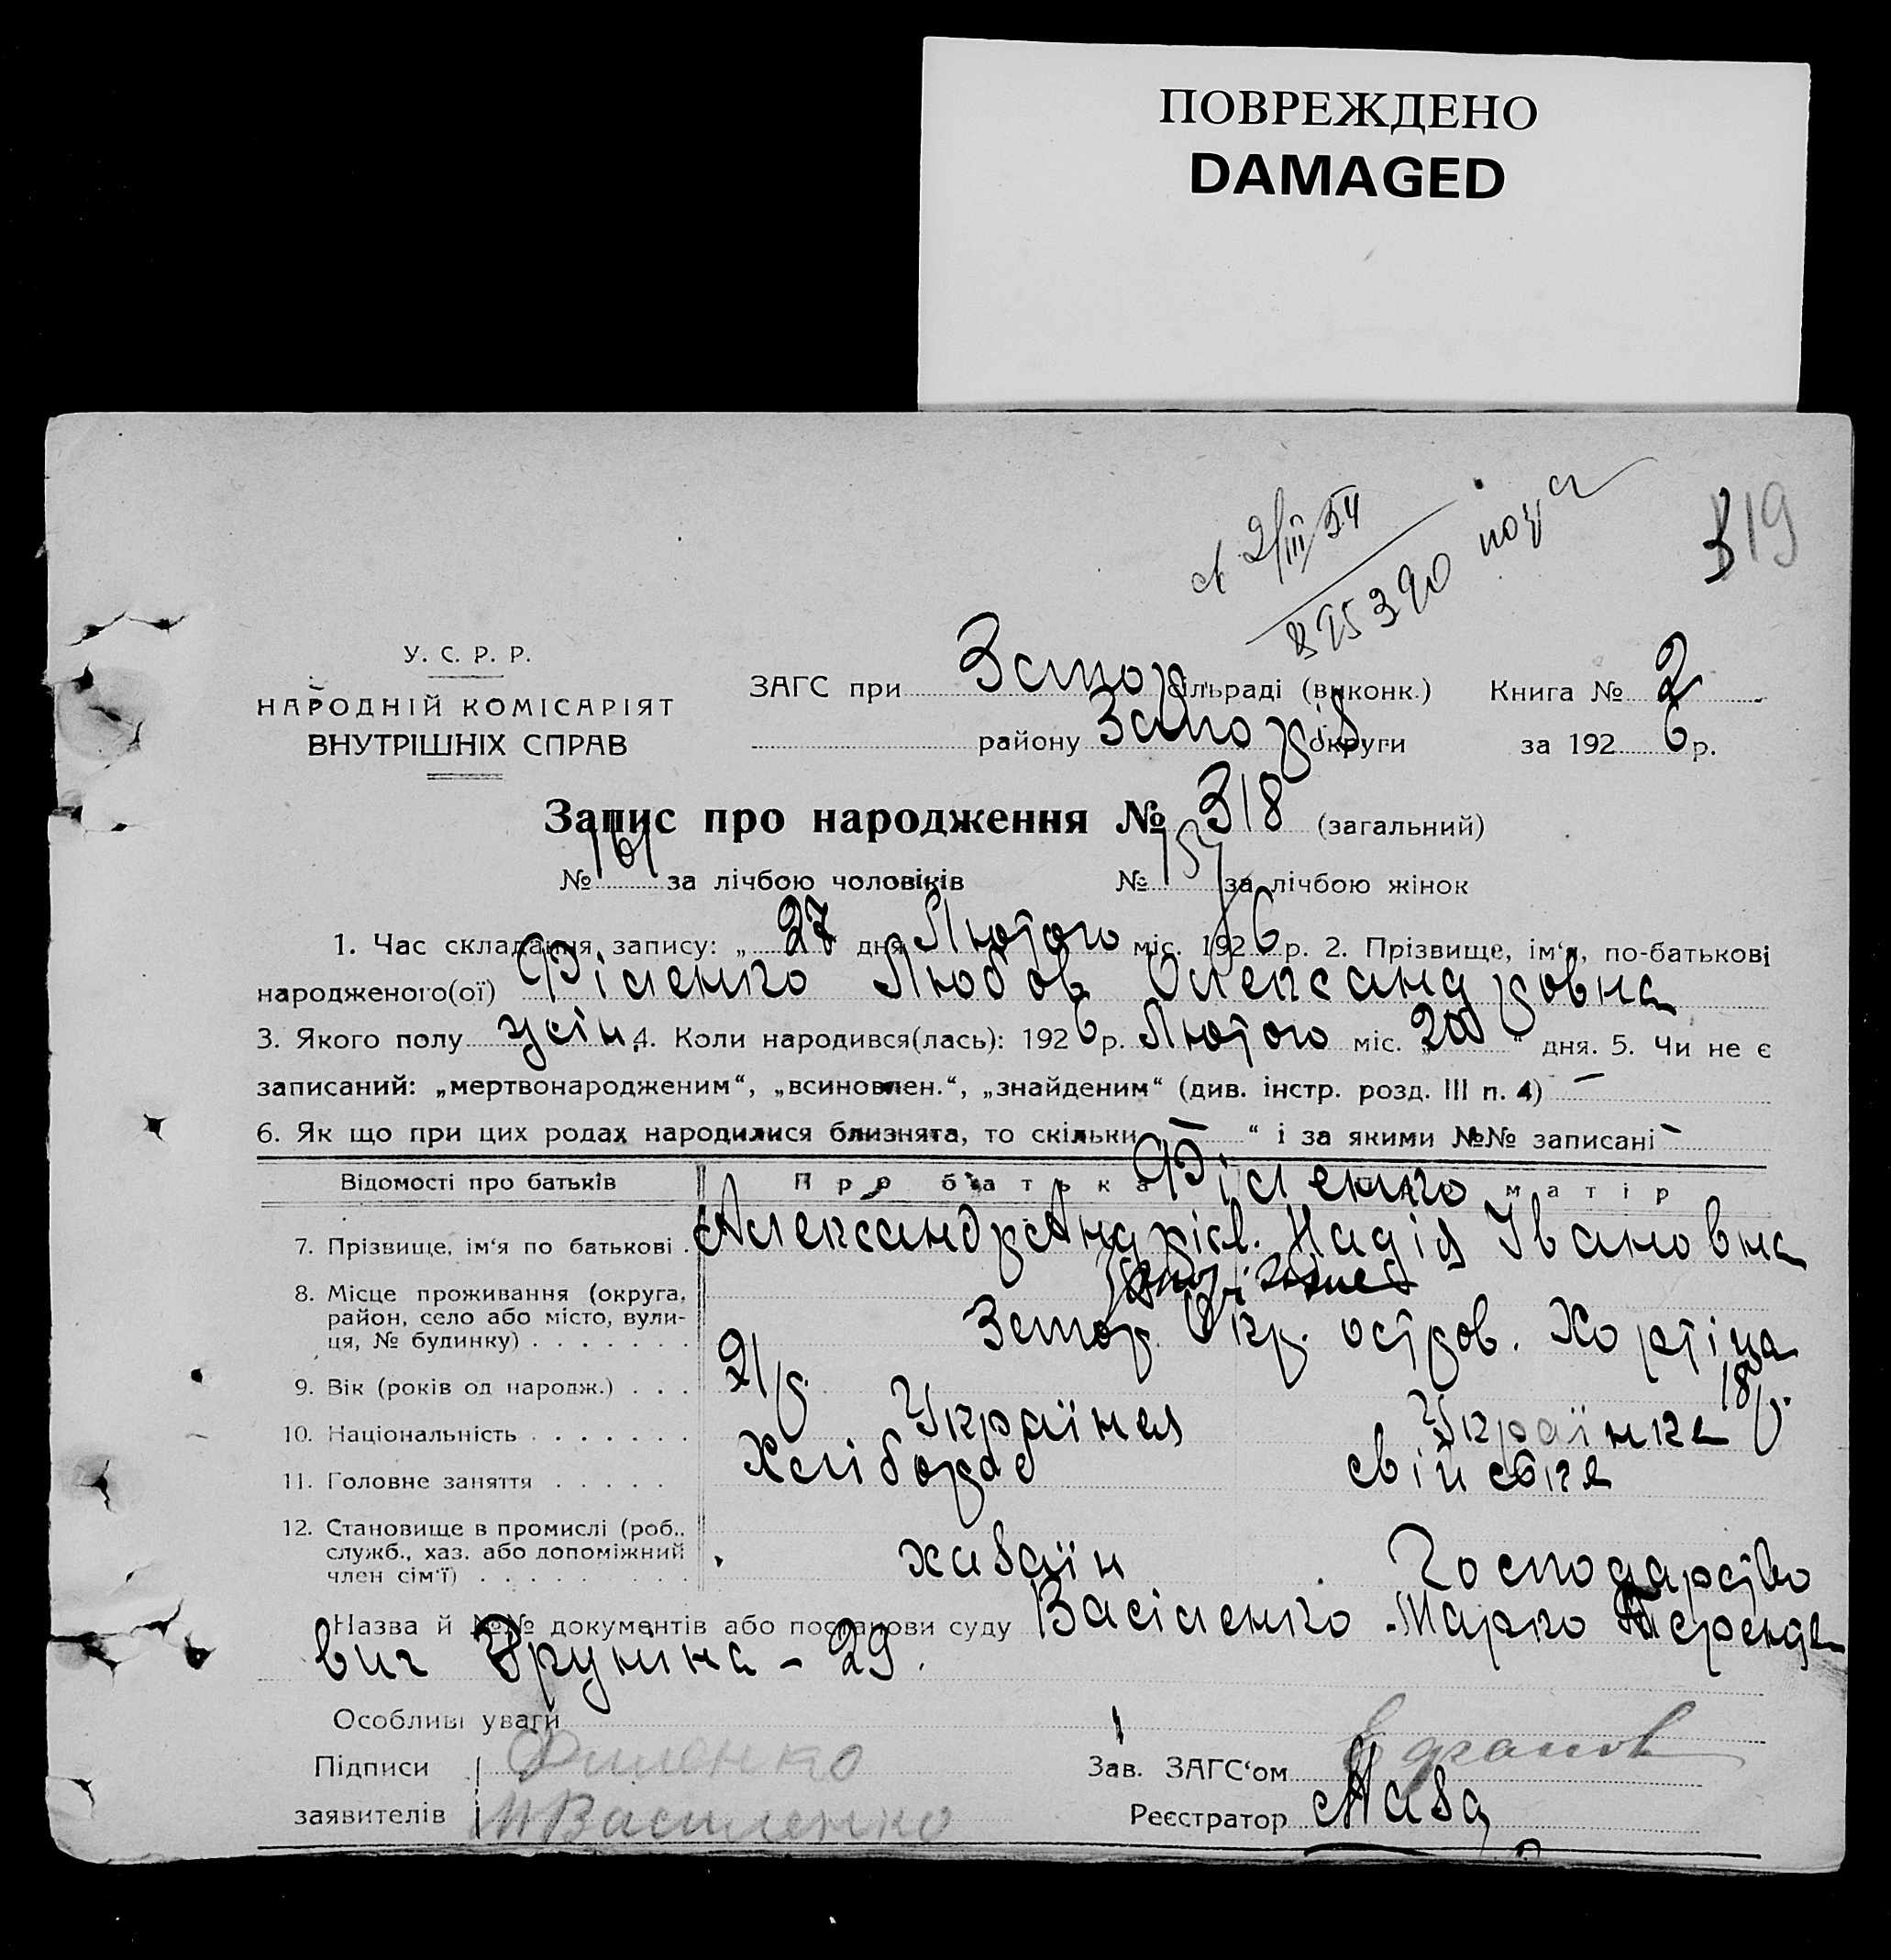 ПОВРЕЖДЕНО
DAMAGED
2/III 54
319
У. С. Р. Р.
НАРОДНІЙ КОМІСАРІЯТ
ВНУТРІШНІХ СПРАВ
ЗАГС при Запор. сільраді (виконк.) Книга № 2
району Запоріз округи за 1926 р.
Запис про народження № 318 (загальний)
№ 161 за лічбою чоловіків № 157 за лічбою жінок
1. Час складання запису: „27 дня Лютого міс. 1926 р. 2. Прізвище, ім‘я, по-батькові
народженого(ої) Філенко Любов Олександровна
3. Якого полу жін. 4. Коли народився(лась): 1926 р. Лютого міс. „20“ дня. 5. Чи не є
записаний: „мертвонародженим“, „всиновлен.“, „знайденим“ (див. інстр. розд. III п. 4) —
6. Як що при цих родах народилися близнята, то скільки — “ і за якими №№ записані —
Відомості про батьків Про батька матір
Філенко
7. Прізвище, ім‘я по батькові . Александр Андрієв. Надія Івановна
8. Місце проживання (округа, район, село або місто, вулиця, № будинку) . . . . . . . Запор. Окр. остров. Хортіца
9. Вік (років од народж.) . . . 21 р. 18 р.
10. Національність . . . . . . . Українец Українка
11. Головне заняття . . . . . Хлібороб свійське
12. Становище в промислі (роб., служб., хаз. або допоміжний член сім‘ї) . . . . . . . . . хазаїн Господарство
Назва й №№ документів або постанови суду Васіленко Марко Терентье
вич Друніна - 29.
Особливі уваги
Підписи Филенко Зав. ЗАГС‘ом
заявителів М Василенко Реєстратор